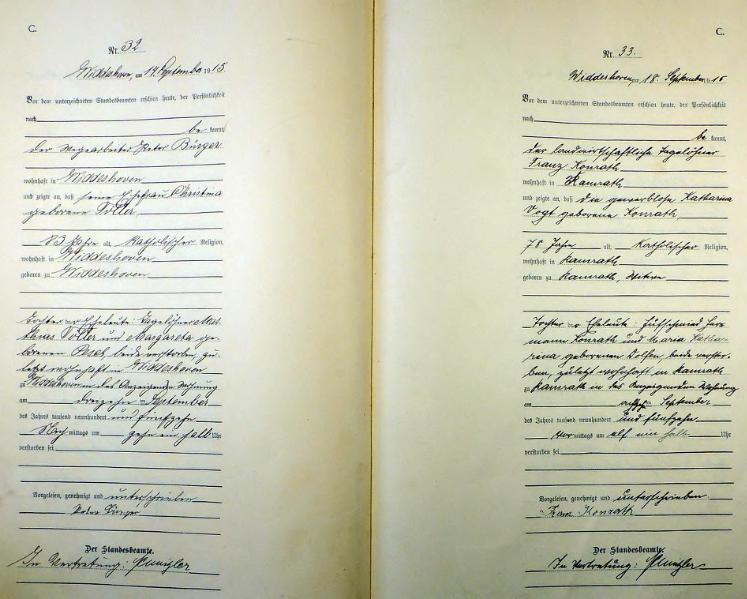 C.
Nr. 32
Widdeshoven, am 14. September 1915.
Vor dem unterzeichneten Standesbeamten erschien heute, der Persönlichkeit
nach
be kannt,
der Wegearbeiter Peter Bürger
wohnhaft in Widdeshoven
und zeigte an, daß seine Ehefrau Christina
geborene Töller
83 Jahre alt, Katholischer Religion,
wohnhaft in Widdeshoven
geboren zu Widdeshoven
Tochter der Eheleute: Tagelöhner Mat-
thias Töller und Margareta ge-
borenen, beide verstorben, zu-
letzt wohnhaft in Widdeshoven
zu Widdeshoven in des Anzeigenden Wohnung
am dreizehn September
des Jahres tausend neunhundert und fünfzehn
Nach mittags um zehn ein halb Uhr
verstorben sei.
Vorgelesen, genehmigt und unterschrieben
Peter Bürger
Der Standesbeamte.
In Vertretung:
C.
Nr. 33.
Widdeshoven, am 18. September 1915
Vor dem unterzeichneten Standesbeamten erschien heute, der Persönlichkeit
nach
be kannt,
der landwirtschaftliche Tagelöhner
Franz Konrath
wohnhaft in Ramrath
und zeigte an, daß die gewerblose Katharina
Vogt geborene Konrath
78 Jahre alt, Katholischer Religion,
wohnhaft in Ramrath
geboren zu Ramrath, Witwe
Tochter der Eheleute: Hufschmied Her-
mann Konrath und Maria Katha-
rina geborenen, beide verstor-
ben, zuletzt wohnhaft in Ramrath
zu Ramrath in des Anzeigenden Wohnung
am September
des Jahres tausend neunhundert und fünfzehn
Vor mittags um elf ein halb Uhr
verstorben sei.
Vorgelesen, genehmigt und unterschrieben
Franz Konrath
Der Standesbeamte.
In Vertretung: